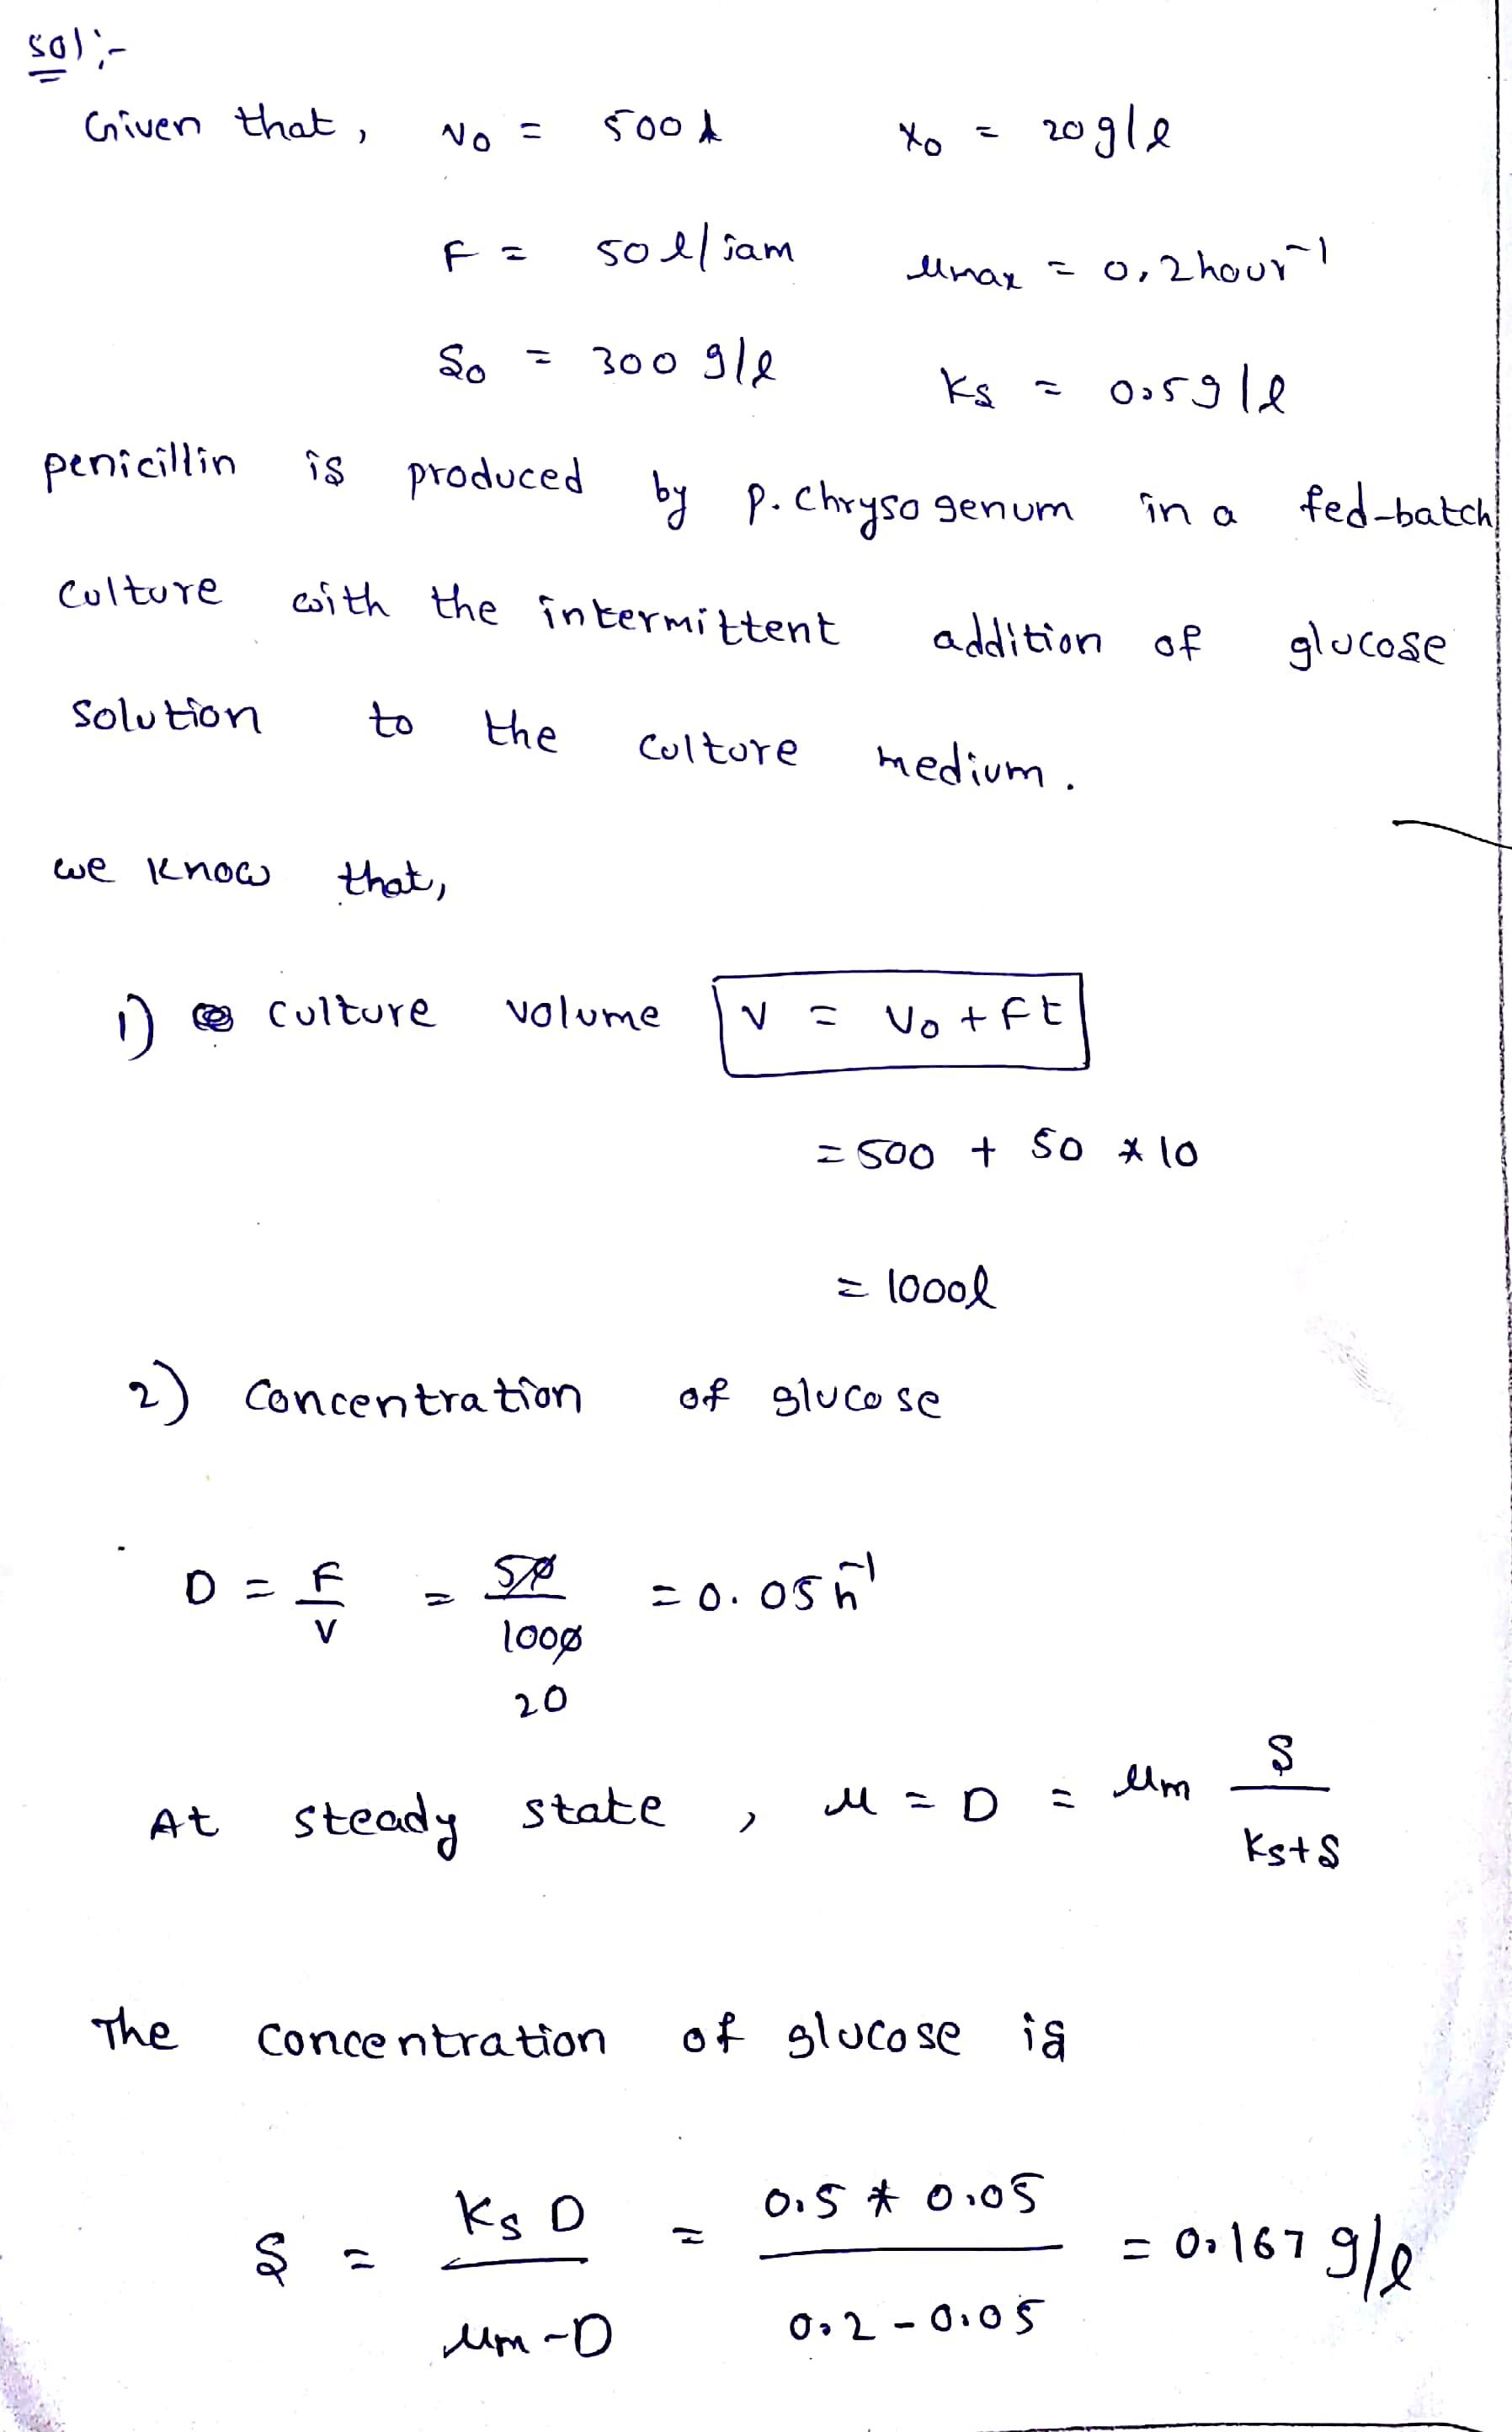 Sol:-
Given that, V₀ = 500 l X₀ = 20 g/l
F = 50 l/iam μmax = 0.2 hour⁻¹
S₀ = 300 g/l Ks = 0.5 g/l
penicillin is produced by P. Chrysogenum in a fed-batch
culture with the intermittent addition of glucose
solution to the culture medium.
we know that,
1) culture volume V = V₀ + Ft
= 500 + 50 * 10
= 1000l
2) Concentration of glucose
D = F/V = 50/1000 = 0.05 h⁻¹
20
At steady state, μ = D = μm S/(Ks+S)
The concentration of glucose is
S = Ks D/(μm-D) = 0.5 * 0.05/(0.2 - 0.05) = 0.167 g/l